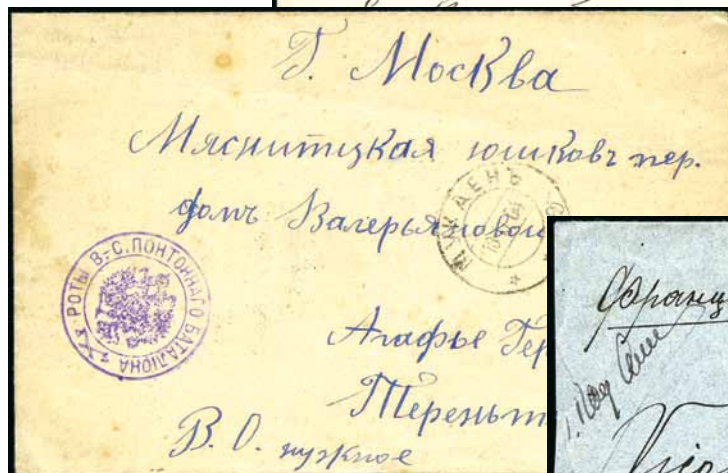 Г. Москва
Мясницкая юшковъ пер.
домъ Валерьяновой
МУКДЕНЪ
РОТЫ В.-С. ПОНТОННАГО БАТАЛІОНА
Агафье Гер
Терентьев
В. О. нужное
Франц